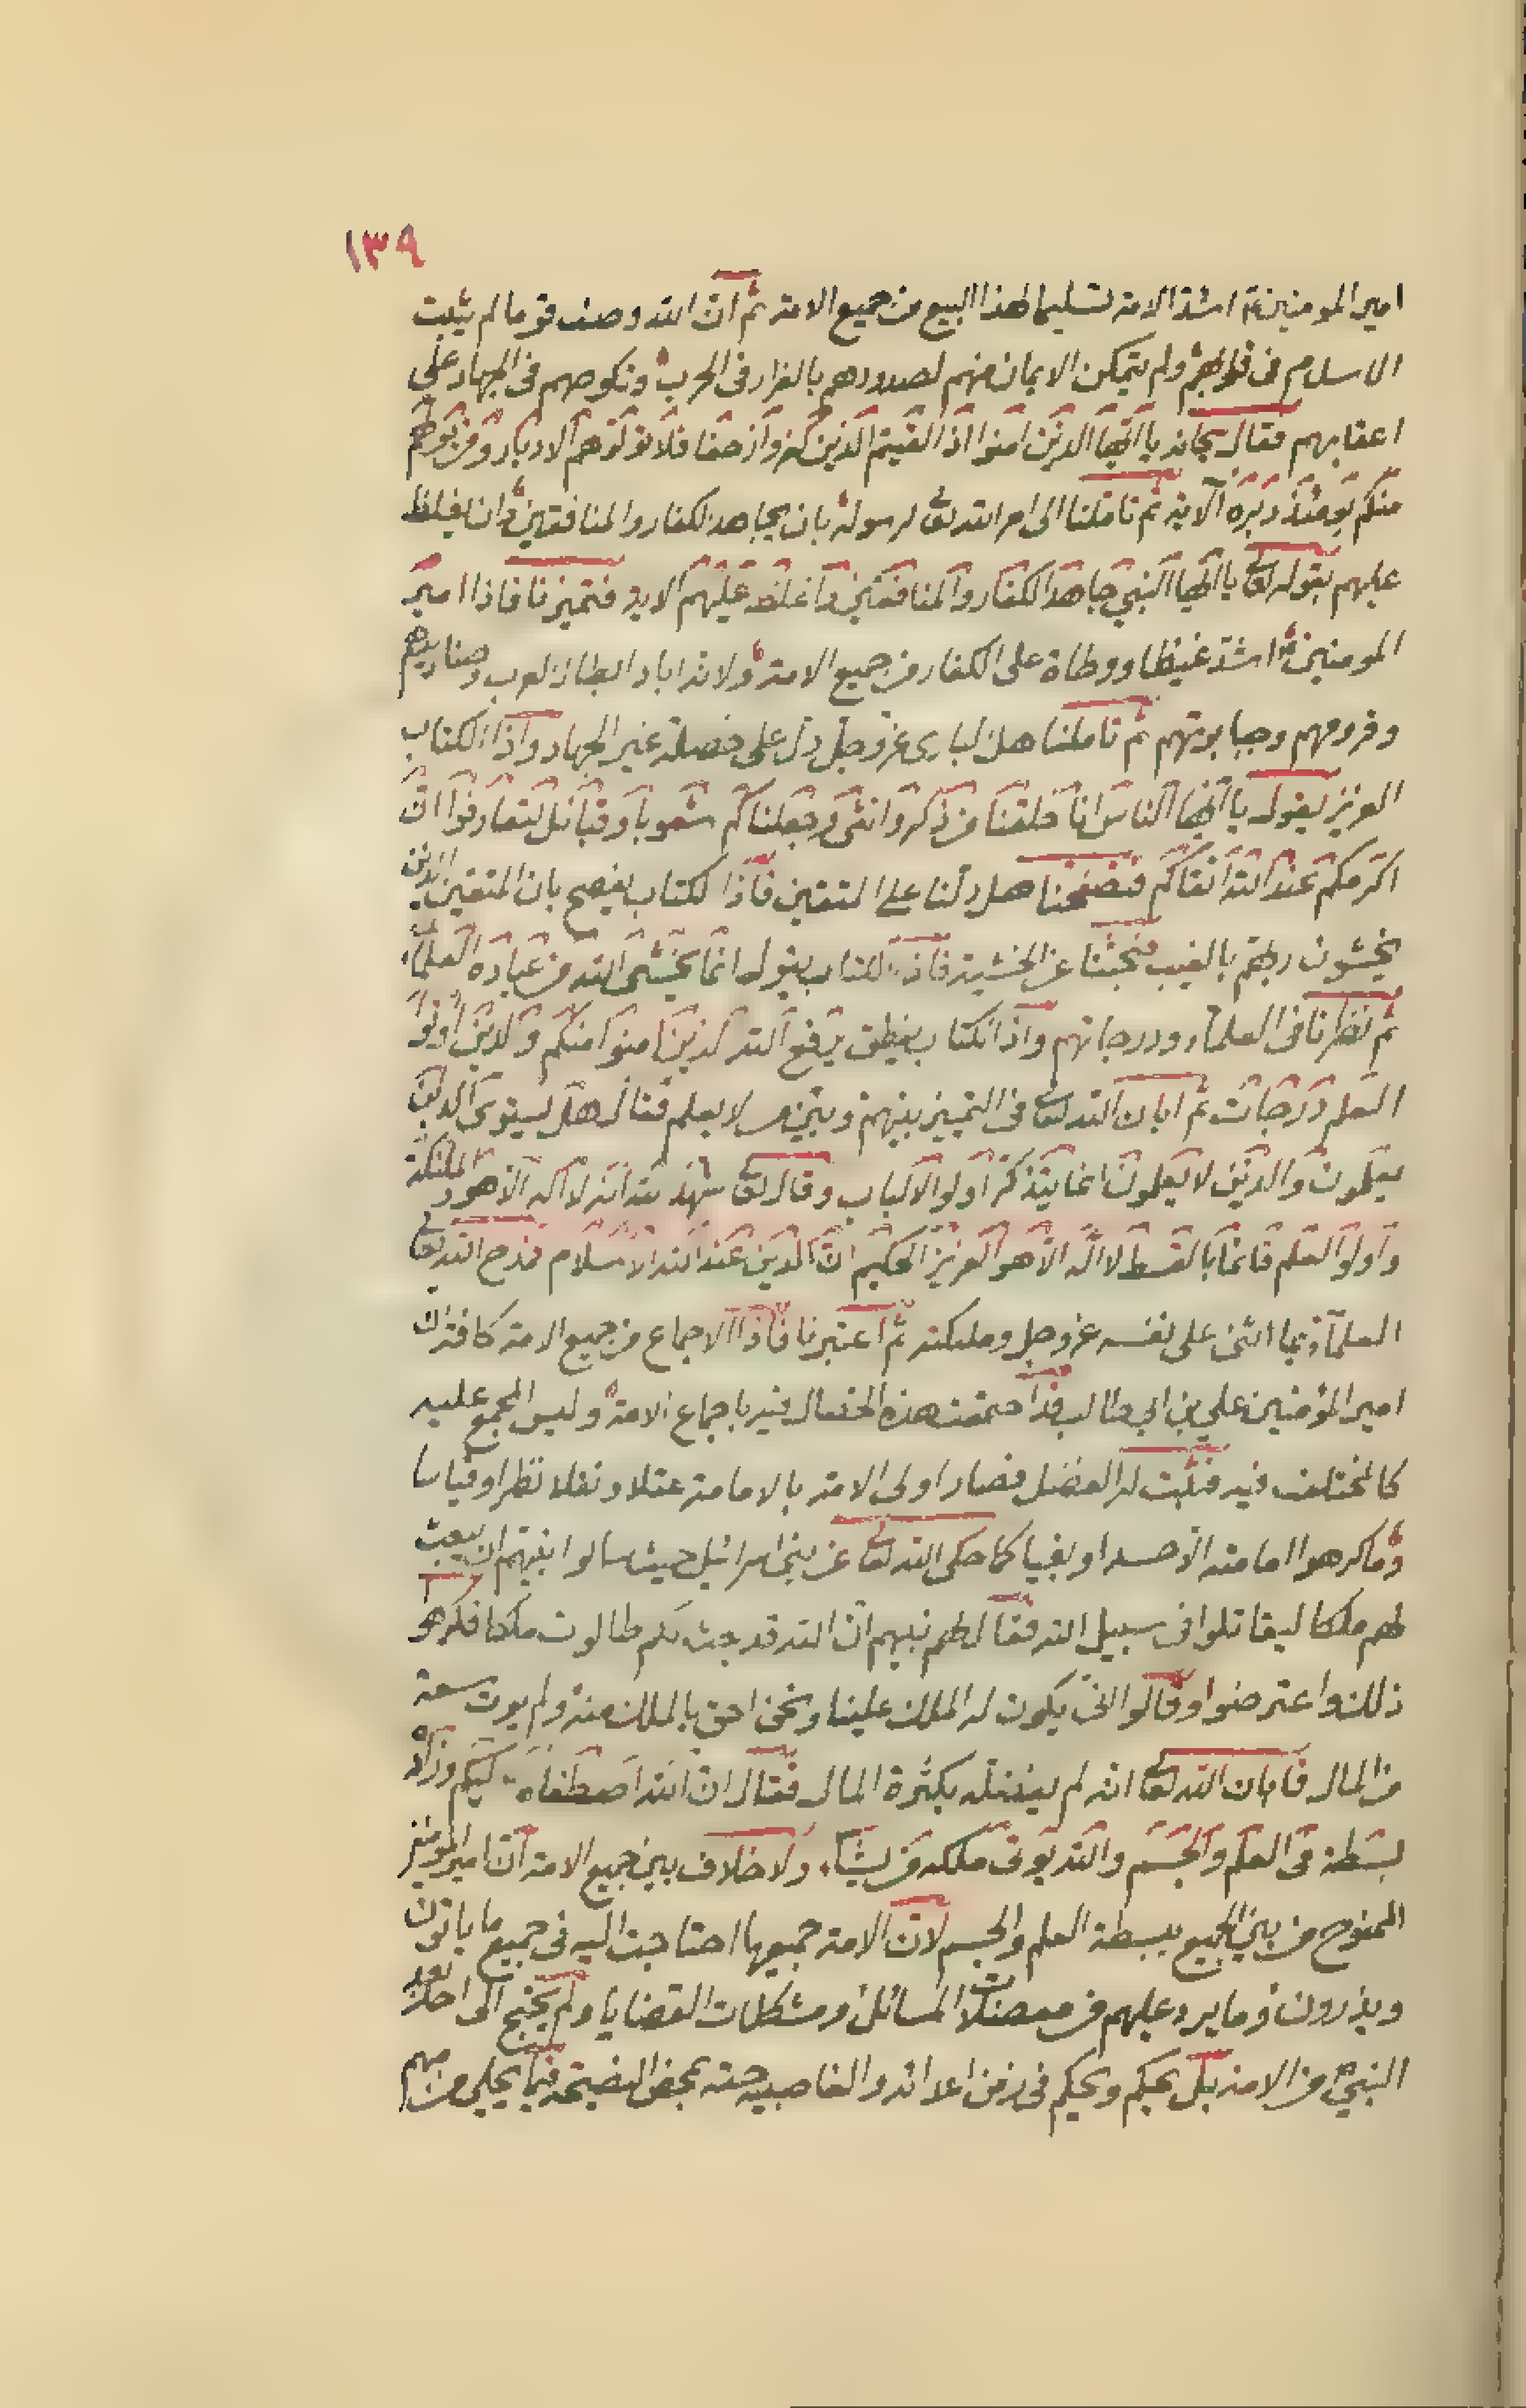 ١٣٩
امير المومنين ع اشد الامة تسليما لهذا البيع من جميع الامة ثم ان الله وصف قوما لم يثبت
الاسلام فى قلوبهم ولم يتمكن الايمان منهم لصدودهم بالفرار فى الحرب ونكوصهم فى الجهاد على
اعقابهم فقال سبحانه يا ايها الذين امنوا اذا لقيتم الذين كفروا زحفا فلا تولوهم الادبار ومن يولهم
منكم يومئذ دبره الاية ثم تاملنا الى امر الله تعالى لرسوله بان يجاهد الكفار والمنافقين وان يغلظ
عليهم بقوله تعالى يا ايها النبي جاهد الكفار والمنافقين واغلظ عليهم الاية فتميزنا فاذا امير
المومنين اشد غيظا ووطاة على الكفار من جميع الامة ولانه اباد ابطال العرب وصناديدهم
وقرومهم وجبابرتهم ثم تاملنا هل البارى عز وجل دل على خصلة غير الجهاد واذا الكتاب
العزيز يقول يا ايها الناس انا خلقناكم من ذكر وانثى وجعلناكم شعوبا وقبائل لتعارفوا ان
اكرمكم عند الله اتقاكم فتصفحنا هل دلنا على المتقين فاذا الكتاب يفصح بان المتقين الذين
يخشون ربهم بالغيب فبحثنا عن الخشية فاذا الكتاب يقول انما يخشى الله من عباده العلماء
ثم نظرنا فى العلماء ودرجاتهم واذا الكتاب ينطق يرفع الله الذين امنوا منكم والذين اوتوا
العلم درجات ثم ابان الله تعالى فى التمييز بينهم وبين من لا يعلم فقال هل يستوى الذين
يعلمون والذين لا يعلمون انما يتذكر اولوا الالباب وقال تعالى شهد الله انه لا اله الا هو والملئكة
واولوا العلم قائما بالقسط لا اله الا هو العزيز الحكيم ان الدين عند الله الاسلام فمدح الله تعالى
العلماء بما اثنى على نفسه عز وجل وملئكته ثم اعتبرنا فاذا الاجماع من جميع الامة كافة ان
امير المؤمنين علي بن ابي طالب قد اجتمعت هذه الخصال فيه باجماع الامة وليس المجمع عليه
كالمختلف فيه فثبت له الفضل فصار اولى الامة بالامامة عقلا ونقلا نظرا وقياسا
وما كرهوا امامته الا حسدا وبغيا كما حكى الله تعالى عن بنى اسرائيل حيث سالوا نبيهم ان يبعث
لهم ملكا ليقاتلوا فى سبيل الله فقال لهم نبيهم ان الله قد بعث لكم طالوت ملكا فكرهوا
ذلك واعترضوا وقالوا انى يكون له الملك علينا ونحن احق بالملك منه ولم يوت سعة
من المال فابان الله تعالى انه لم يفضله بكثرة المال فقال ان الله اصطفاه عليكم وزاده
بسطة فى العلم والجسم والله يوتى ملكه من يشاء ولا خلاف بين جميع الامة ان امير المومنين
الممنوح من بين الجميع ببسطة العلم والجسم لان الامة جميعها احتاجت اليه فى جميع ما ياتون
ويذرون وما يرد عليهم من معضلات المسائل ومشكلات القضايا ولم يحتج الى احد بعد
النبي ص من الامة بل يحكم ويحكم فى زمن اعدائه والغاصبيه حقه بمحض النصيحة فيما يجلى من مهم